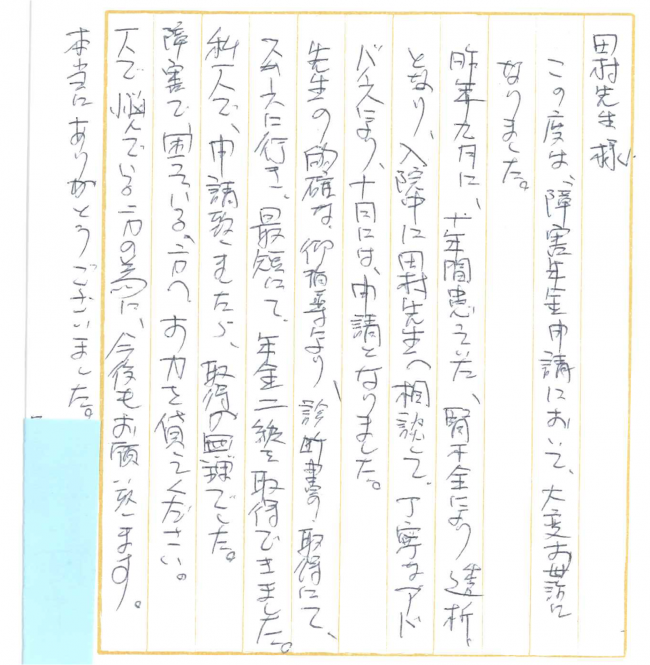 田村先生様
この度は、障害年金申請において、大変お世話に
なりました。
昨年九月に、十年間患っていた、腎不全により透析
となり、入院中に田村先生へ相談して、丁寧なアド
バイスにより、十月には、申請となりました。
先生の的確な、御指導により、診断書の取得にて、
スムースに行き、最短にて、年金二級を取得できました。
私一人で、申請致しましたら、取得の無理でした。
障害で困っている、方へ、お力を貸してください。
一人で悩んでいる方の為に、今後もお願い致します。
本当にありがとうございました。